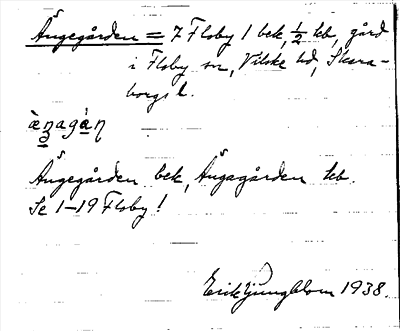 Ängegården = 7 Floby 1 bek, ½ kb, gård
i Floby sn, Vilske hd, Skara-
borgs l.
æ̀ŋagàṇ
Ängegården bek, Ängagården kb.
Se 1-19 Floby!
Erik Ljungblom 1938.